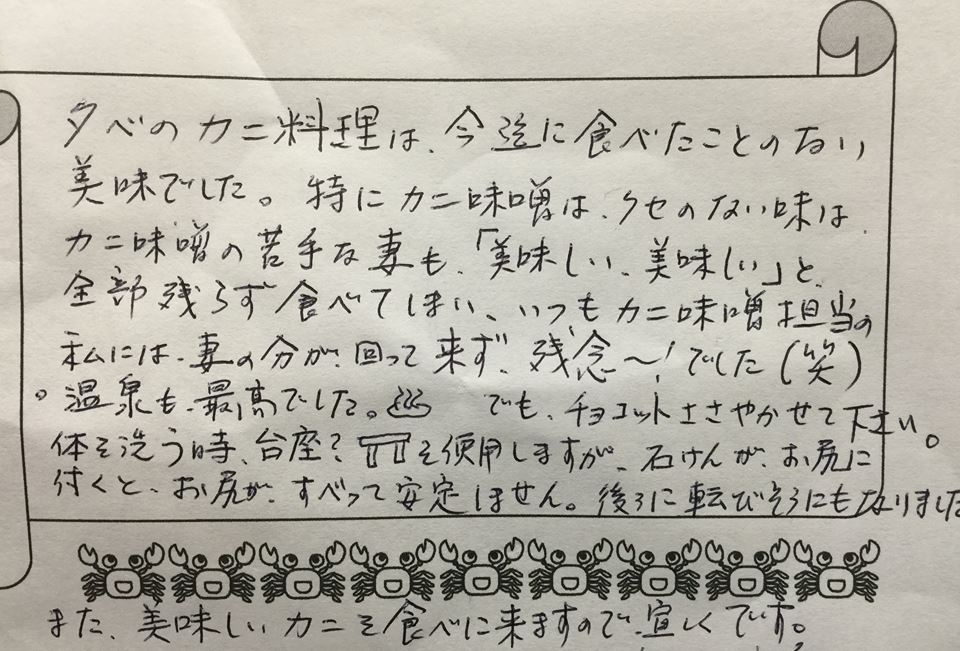 夕べのカニ料理は、今迄に食べたことのない
美味でした。特にカニ味噌は、クセのない味は
カニ味噌の苦手な妻も、「美味しい、美味しい」と、
全部残らず食べてしまい、いつもカニ味噌担当の
私には、妻の分が、回って来ず、残念〜!でした(笑)
。温泉も、最高でした。♨ でも、チョコットささやかせて下さい。
体を洗う時、台座?を使用しますが、石けんが、お尻に
付くと、お尻が、すべって安定しません。後ろに転びそうにもなりました
また、美味しいカニを食べに来ますので、宜しくです。